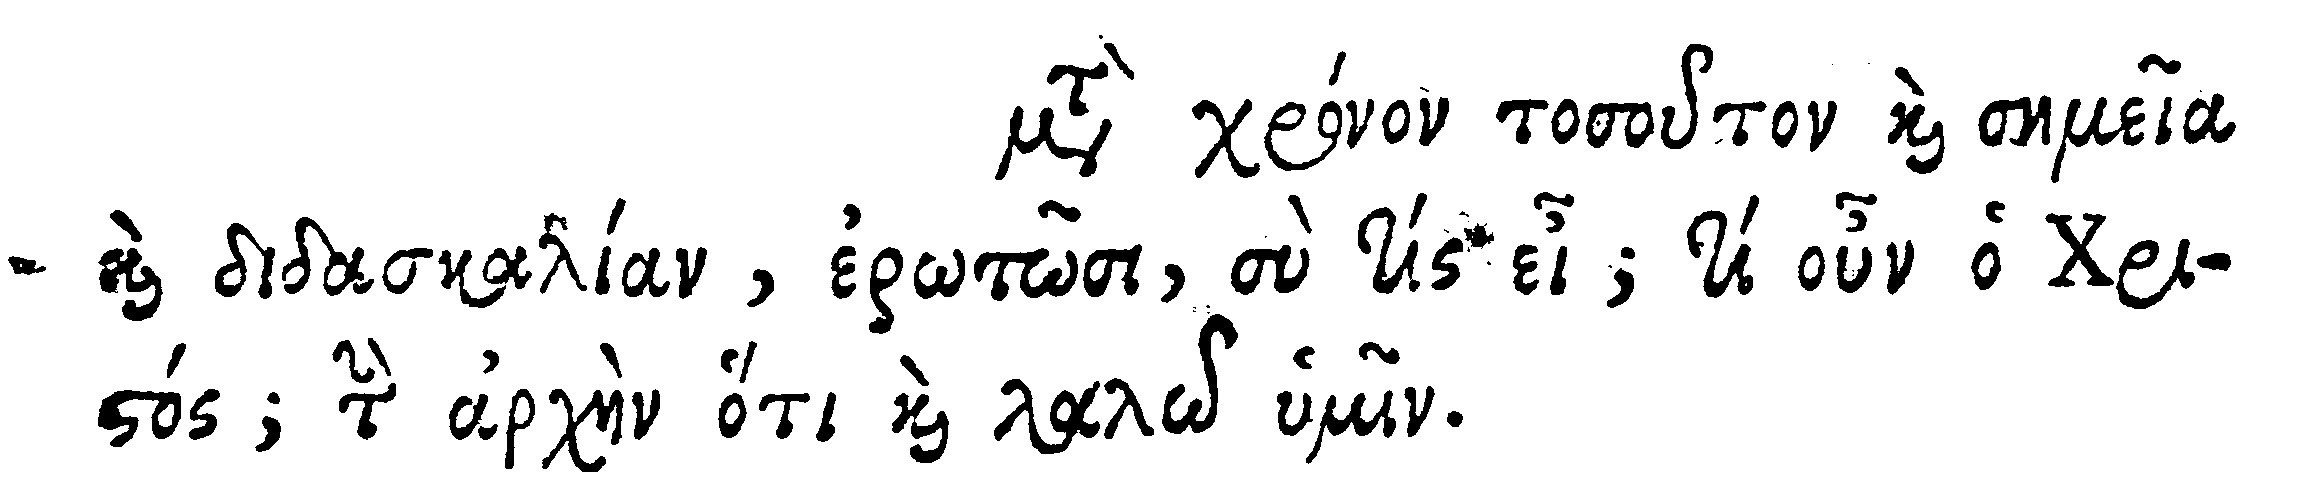 μετὰ χρόνον τοσοῦτον καὶ σημεῖα
καὶ διδασκαλίαν, ἐρωτῶσι, σὺ τίς εἶ; τί οὖν ὁ Χρι-
στός; τὴν ἀρχὴν ὅτι καὶ λαλῶ ὑμῖν.